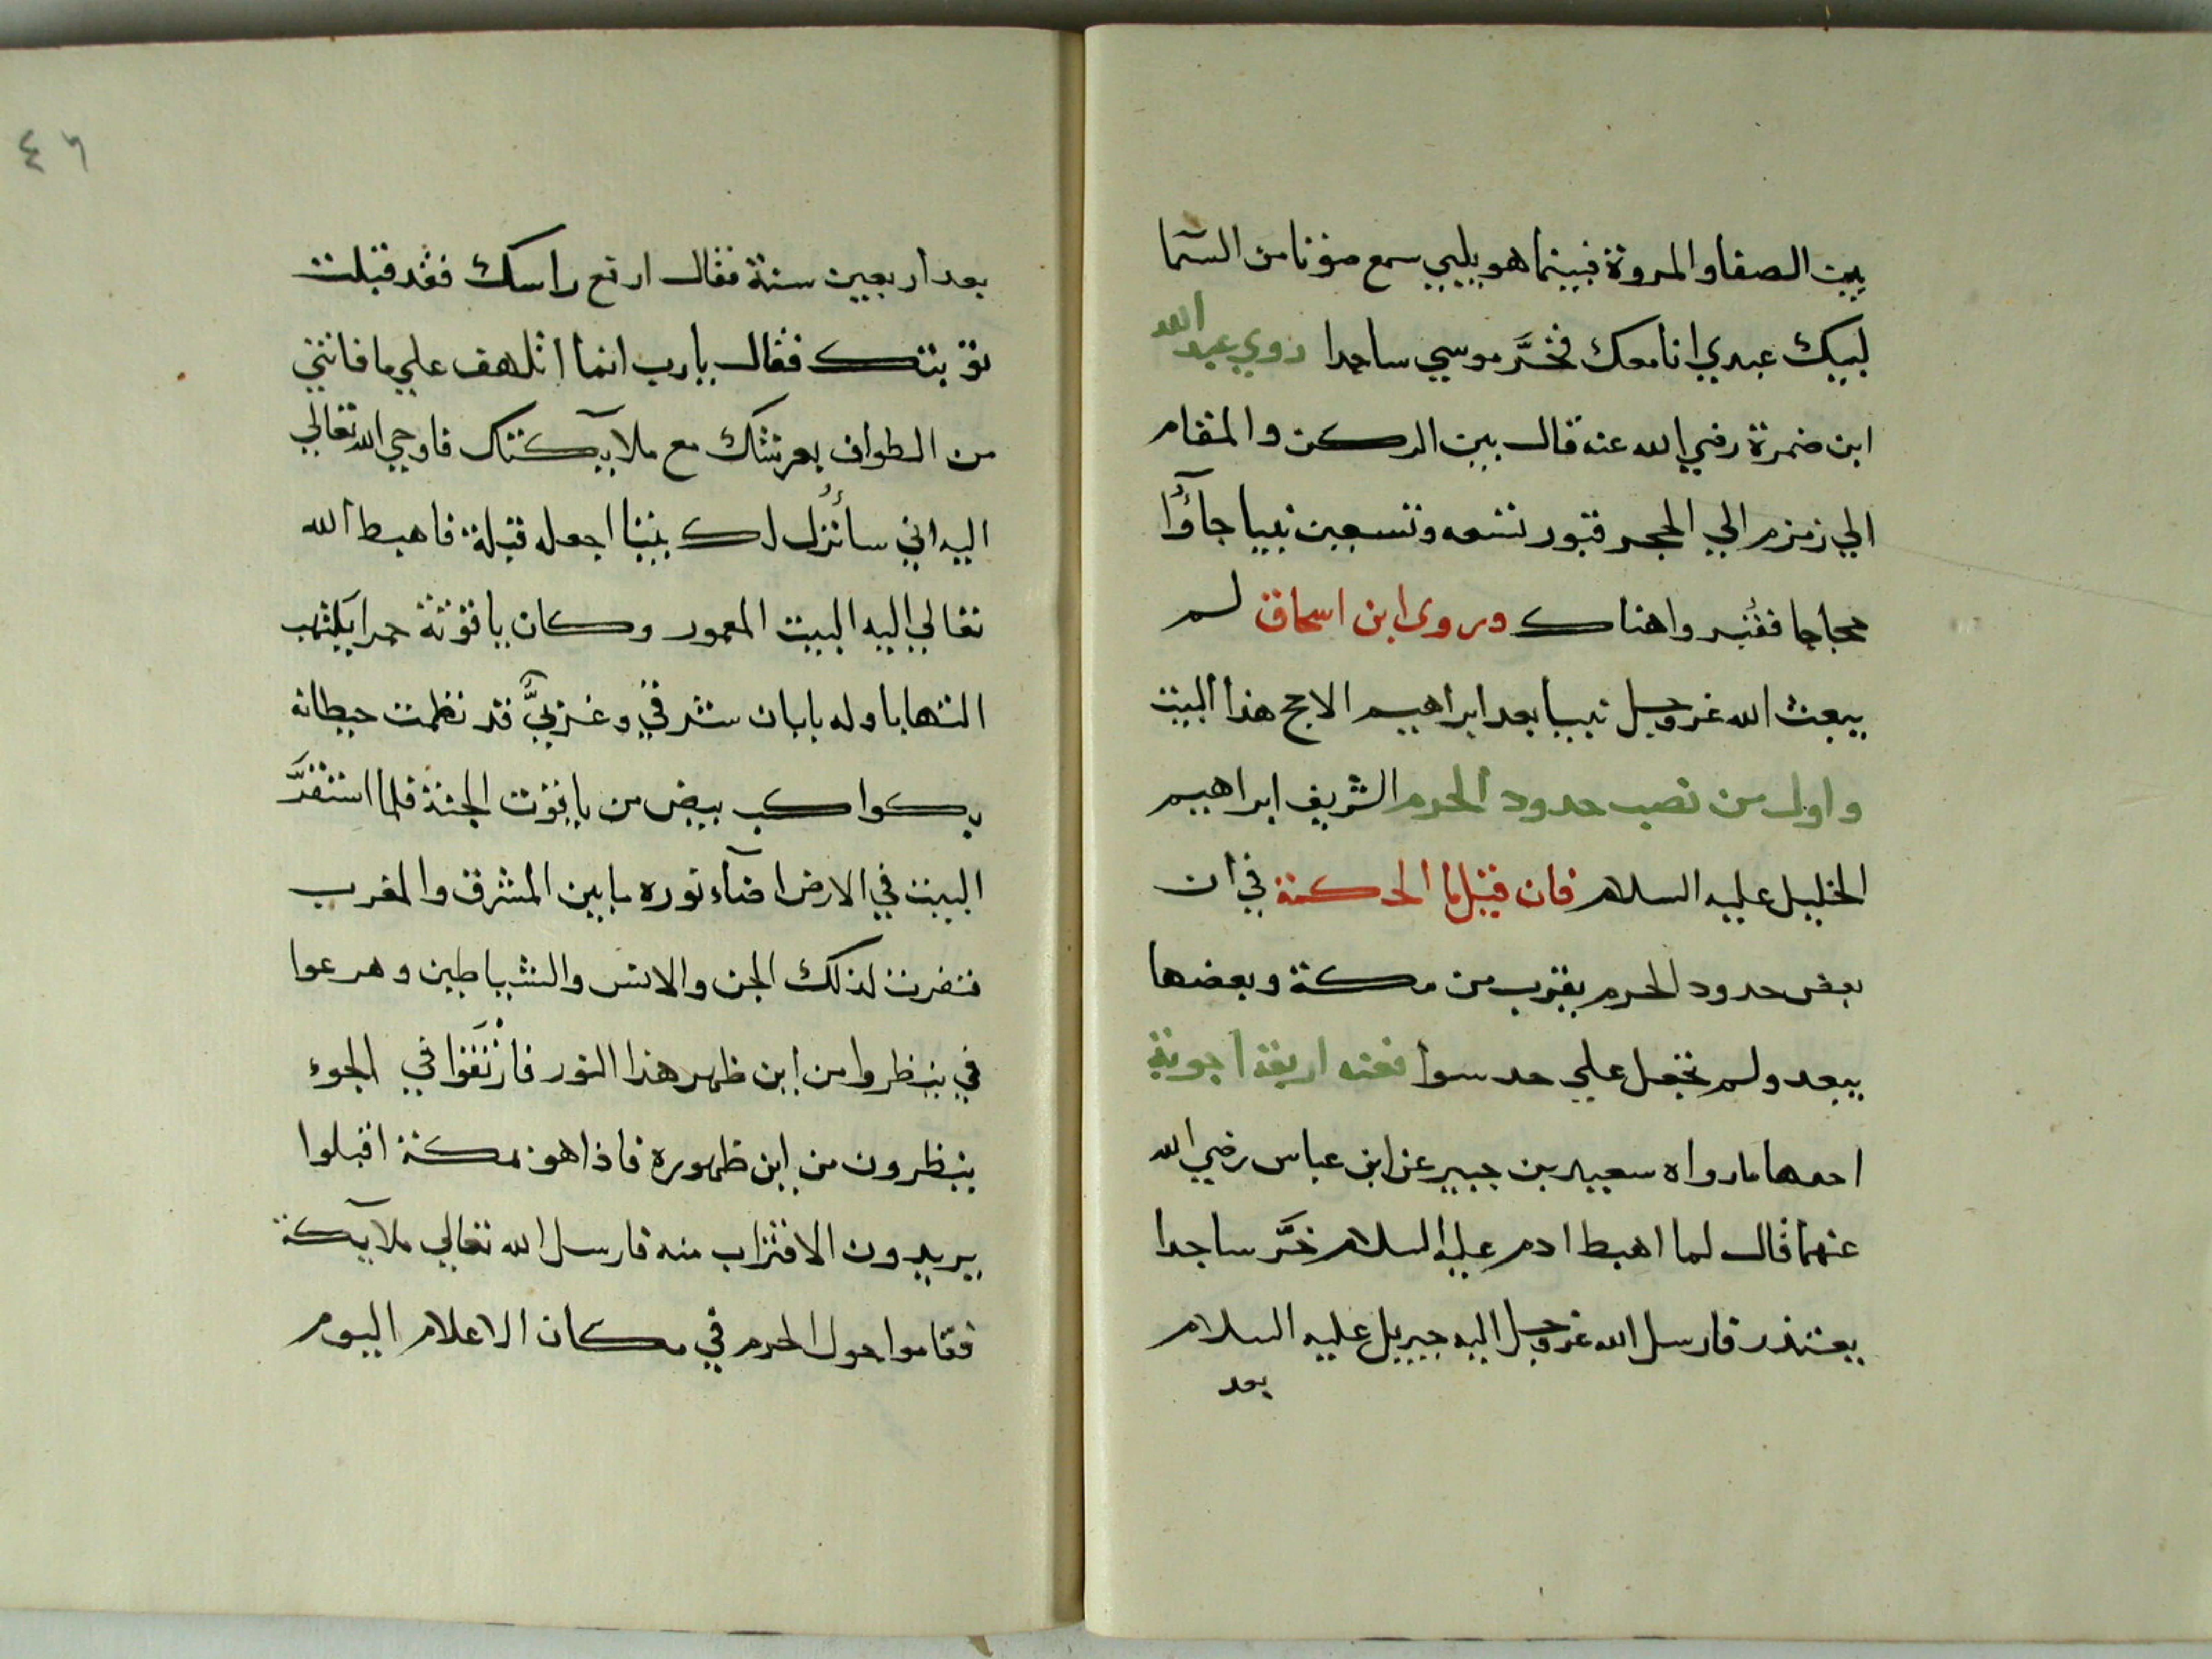 بين الصفا والمروة فبينما هو يلبي سمع صوتا من السما
لبيك عبدي انا معك فخرَّ موسي ساجدا روي عبد الله
ابن ضمرة رضي الله عنه قال بين الركن والمقام
الي زمزم الي الحجر قبور تسعه وتسعين نبيا جاؤا
حجاجا فقُبروا هناك وروى ابن اسحاق لم
يبعث الله عز وجل نبيا بعد ابراهيم الا حج هذا البيت
واول من نصب حدود الحرم الشريف ابراهيم
الخليل عليه السلام فان قيل ما الحكمة في ان
بعض حدود الحرم يقرب من مكة وبعضها
يبعد ولم تجعل علي حد سوا فعنه اربعة اجوبة
احدها ما رواه سعيد بن جبير عن ابن عباس رضي الله
عنهما قال لما اهبط ادم عليه السلام خرَّ ساجدا
يعتذر فارسل الله عز وجل اليه جبريل عليه السلام
بعد
٤٦
بعد اربعين سنة فقال ارفع راسك فقد قبلت
توبتك فقال يارب انما اتلهف علي ما فاتني
من الطواف بعرشك مع ملايكتك فاوحي الله تعالي
اليه اني سأُنزل لك بيتا اجعله قبلة فاهبط الله
تعالي اليه البيت المعمور وكان ياقوتة حمرا يلتهب
التهابا وله بابان شرقي وغربيَّ قد نظمت حيطانه
بكواكب بيض من ياقوت الجنة فلما استقرَّ
البيت في الارض اضآء نوره ما بين المشرق والمغرب
فنفرت لذلك الجن والانس والشياطين وهرعوا
في ينظروا من اين ظهر هذا النور فارْتَقَوا في الجوء
ينظرون من اين ظهوره فاذا هو بمكة اقبلوا
يريدون الاقتراب منه فارسل الله تعالي ملآيكة
فقاموا حول الحرم في مكان الاعلام اليوم